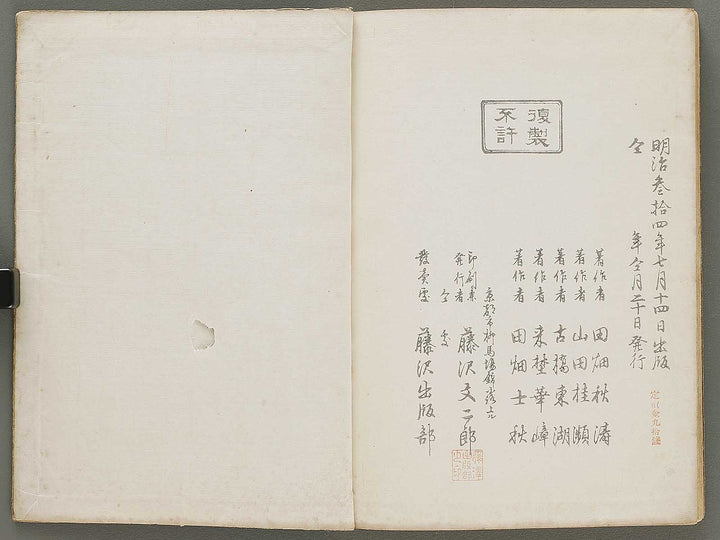 復製
不許
明治叁拾四年七月十四日出版
仝年仝月二十日発行
定價金九拾錢
著作者 田畑秋濤
著作者 山田桂瀕
著作者 古擣東湖
著作者 来埜華嶂
著作者 田畑士秋
京都市柳馬場錦
印刷兼発行者 藤沢文二郎
仝處
發賣處 藤沢出版部